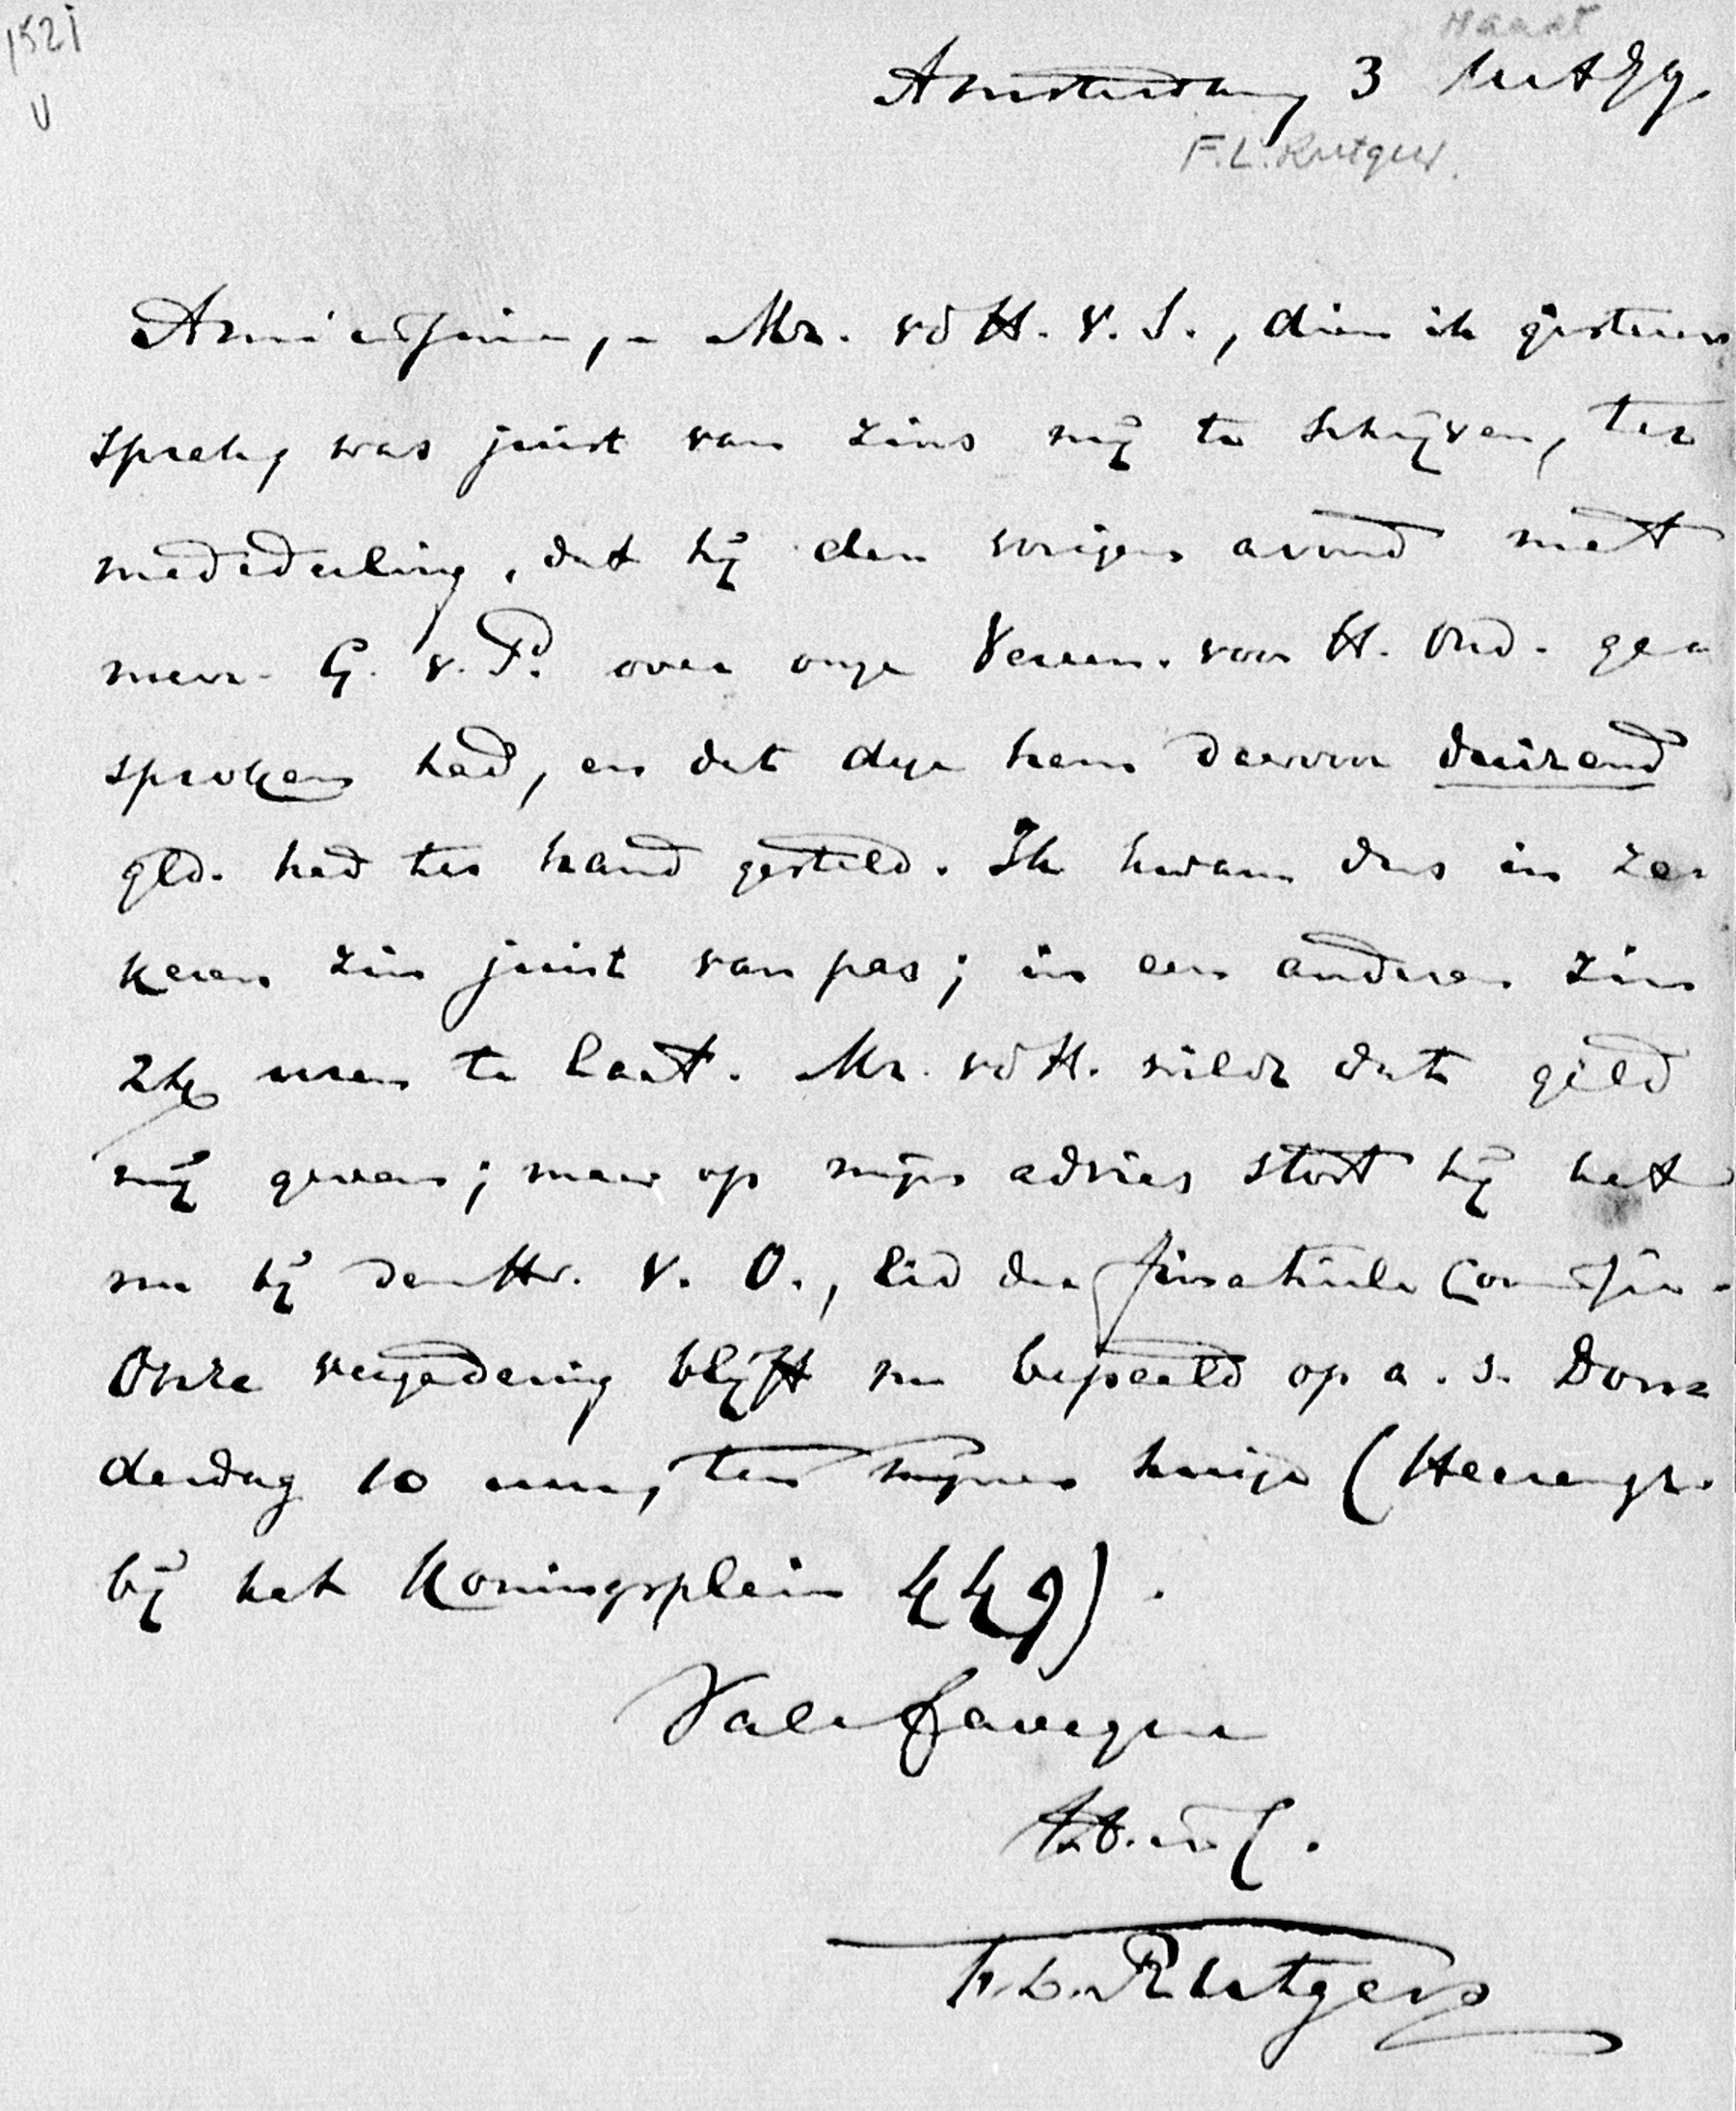 1521
Maart
Amsterdam 3 Mrt 79.
F.L. Rutgers.
Amicissime, - Mr. vd H. v. S., dien ik gisteren
sprak, was juist van zins mij te schrijven, ter
mededeeling, dat hij den vorigen avond met
mevr. G. v. P. over onze Vereen. voor H. Ond. ge=
sproken had, en dat deze hem daarvoor duizend
gld. had ter hand gesteld. Ik kwam dus in ze=
keren zin juist van pas; in een anderen zin
24 uren te laat. Mr. vd H. wilde dat geld
mij geven; maar op mijn advies stort hij het
nu bij den Hr. v. O., lid der financieele Commissie.
Onze vergadering blijft nu bepaald op a. s. Don=
derdag 10 uur, ten mijnen huize (Heerengr.
bij het Koningsplein 449).
Vale faveque
F. L. Rutgers